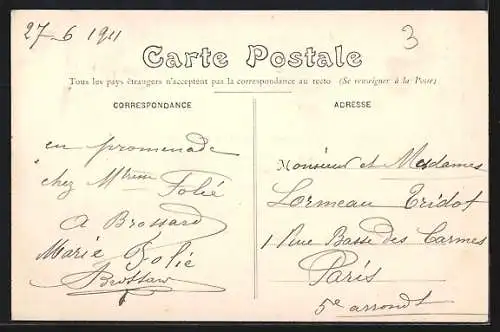 27-6 1911
3
Carte Postale
Tous les pays étrangers n'acceptent pas la correspondance au recto (Se renseigner à la Poste)
CORRESPONDANCE
en promenade
chez Folié
A Brossard
Marie Folie
Brossard
ADRESSE
Monsieur et Mesdames
Lormeau Tridot
1 Rue Basse des Carmes
Paris
5e arrondt